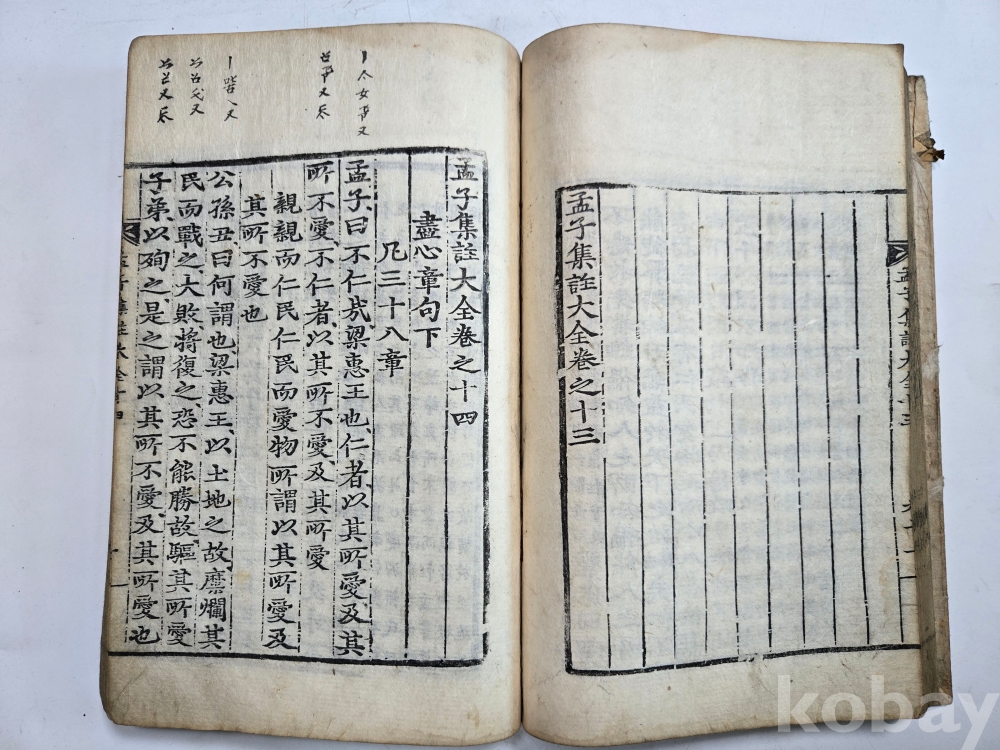 孟子集註大全卷之十三
孟子集註大全卷之十四
盡心章句下
凡三十八章
孟子曰不仁哉梁惠王也仁者以其所愛及其
所不愛不仁者以其所不愛及其所愛
親親而仁民仁民而愛物所謂以其所愛及
其所不愛也
公孫丑曰何謂也梁惠王以土地之故糜爛其
民而戰之大敗將復之恐不能勝故驅其所愛
子弟以殉之是之謂以其所不愛及其所愛也
kobay